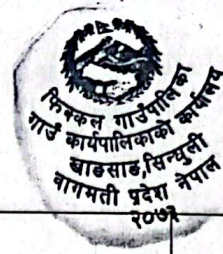 फिक्कल गाउँपालिका
गाउँ कार्यपालिकाको कार्यालय
खाङसाङ, सिन्धुली
वागमती प्रदेश नेपाल
२०७३